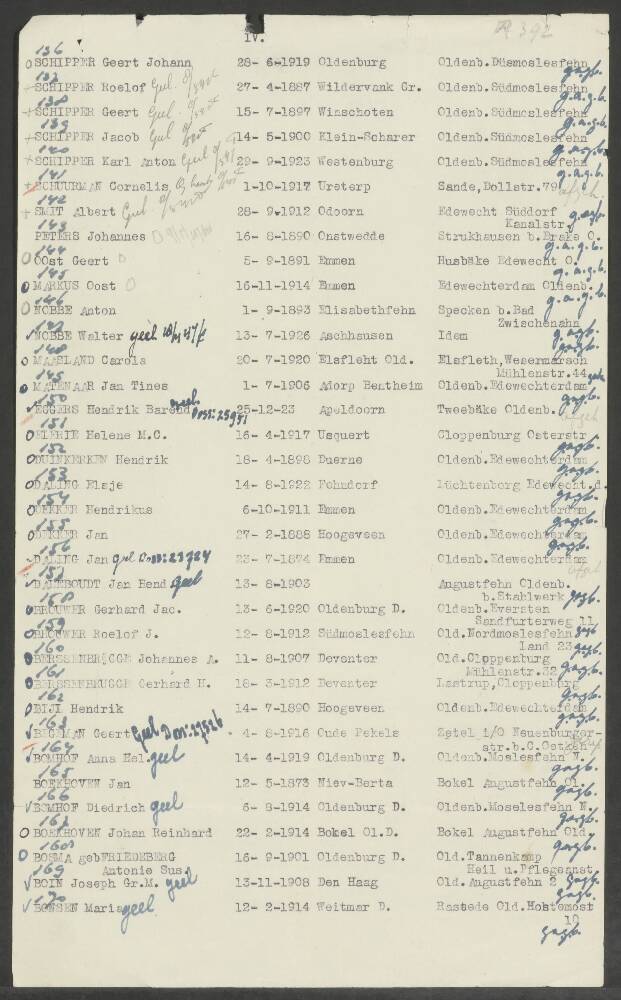 IV.
R 392
136
SCHIPPER Geert Johann 28- 6-1919 Oldenburg Oldenb.Düsmoslesfehn
137 g.a.g.b.
SCHIPPER Roelof Geel 27- 4-1887 Wildervank Gr. Oldenb.Südmoslesfehn
138 g.a.g.b.
SCHIPPER Geert Geel 15- 7-1897 Winschoten Oldenb.Südmoslesfehn
139 g.a.g.b.
SCHIPPER Jacob Geel 14- 5-1900 Klein-Scharer Oldenb.Südmoslesfehn
140 g.a.g.b.
SCHIPPER Karl Anton Geel 29- 9-1923 Westenburg Oldenb.Südmoslesfehn
141 g.a.g.b.
SCHUURMAN Cornelis 1-10-1917 Ureterp Sande,Dollstr.79
142
SMIT Albert Geel 28- 9-1912 Odoorn Edewecht Süddorf
143 Kanalstr. g.a.g.b.
PETERS Johannes 16- 8-1890 Onstwedde Strukhausen b.Brake O.
144 g.a.g.b.
Oost Geert 5- 9-1891 Emmen Husbäke Edewecht O.
145 g.a.g.b.
MARKUS Oost 16-11-1914 Emmen Edewechterdam Oldenb.
146 g.a.g.b.
NOBBE Anton 1- 9-1893 Elisabethfehn Specken b.Bad
147 Zwischenahn
NOBBE Walter geel 13- 7-1926 Aschhausen Idem gagb.
148 gagb.
MAASLAND Carola 20- 7-1920 Elsfleht Old. Elsfleth,Wesermarsch
149 Mühlenstr.44 gagb
MATENAAR Jan Tines 1- 7-1906 Adorp Bentheim Oldenb.Edewechterdam
150 geel gagb.
EGGERS Hendrik Barend Doss: 25951 25-12-23 Apeldoorn Tweebäke Oldenb.
151
ELERIE Helene M.C. 16- 4-1917 Usquert Cloppenburg Osterstr
152 gagb.
DUINKERKEN Hendrik 18- 4-1898 Duerne Oldenb.Edewechterdam
153 gagb.
DALING Elsje 14- 8-1922 Fohndorf Lüchtenborg Edewecht.d.
154 gagb.
DEKKER Hendrikus 6-10-1911 Emmen Oldenb.Edewechterdam
155 gagb.
DEKKER Jan 27- 2-1888 Hoogeveen Oldenb.Edewechterdam
156 gagb.
DALING Jan gel Doss: 23784 23- 7-1874 Emmen Oldenb.Edewechterdam
157
DAMEBOUDT Jan Rend geel 13- 8-1903 Augustfehn Oldenb.
158 b.Stahlwerk gagb.
BROUWER Gerhard Jac. 13- 6-1920 Oldenburg D. Oldenb.Eversten
159 Sandfurterweg 11
BROUWER Roelof J. 12- 8-1912 Südmoslesfehn Old.Nordmoslesfehn gagb
160 Land 23 gagb.
BERSSENBRUGGE Johannes A. 11- 8-1907 Deventer Old.Cloppenburg
161 Mühlenstr.32 gagb.
BERSSENBRUGGE Gerhard H. 18- 3-1912 Deventer Lastrup,Cloppenburg
162 gagb.
BIJL Hendrik 14- 7-1890 Hoogeveen Oldenb.Edewechterdam
163 gagb.
BEGEMAN Geert Geel Doss: 27526 4- 8-1916 Oude Pekela Zetel i/O Neuenburger-
164 str.b.C.Oetken
BOMHOF Anna Hel. geel 14- 4-1919 Oldenburg D. Oldenb.Moslesfehn N.
165 gagb.
BOEKHOVEN Jan 12- 5-1873 Niev-Berta Bokel Angustfehn Ol.
166 gagb.
BOMHOF Diedrich geel 6- 8-1914 Oldenburg D. Oldenb.Moselesfehn N.
167 gagb.
BOEKHOVEN Johan Reinhard 22- 2-1914 Bokel Ol.D. Bokel Augustfehn Old.
168 gagb.
BOSMA gebFRIEDEBERG 16- 9-1901 Oldenburg D. Old.Tannenkamp
169 Antonie Sus. Heil u.Pflegeanst
BOIN Joseph Gr.M. geel 13-11-1908 Den Haag Old.Augustfehn 2 gagb.
170 gagb.
BONSEN Maria geel 12- 2-1914 Weitmar D. Rastede Old.Hostemost
10
gagb.